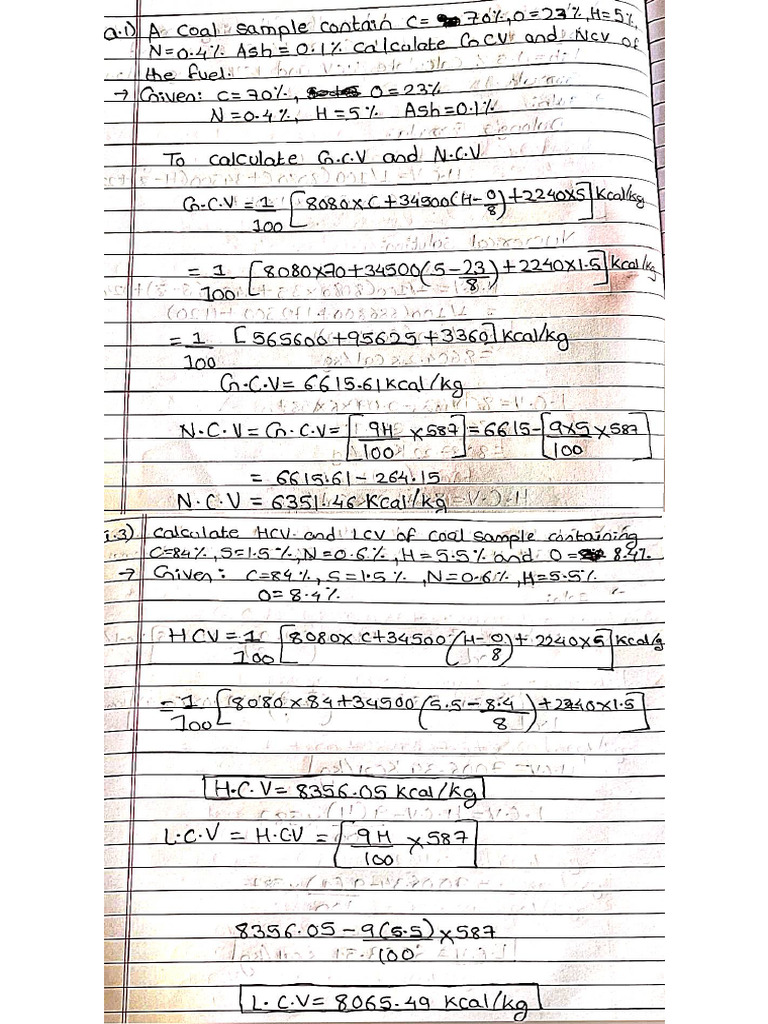 a.1) A coal sample contain C= 70%, O=23%, H=5%,
N=0.4% Ash=0.1% calculate GCV and NCV of
the fuel.
→ Given: C=70%, O=23%
N=0.4%, H=5% Ash=0.1%
To calculate G.C.V and N.C.V
G.C.V = 1/100 [8080×C+34500(H-O/8)+2240×S] Kcal/kg
= 1/100 [8080×70+34500(5-23/8)+2240×1.5] Kcal/kg
= 1/100 [565600+95625+3360] Kcal/kg
G.C.V = 6615.61 Kcal/kg
N.C.V = G.C.V = [9H/100 ×587] = 6615-[9×5/100 ×587]
= 6615.61-264.15
N.C.V = 6351.46 Kcal/kg
i.3) calculate HCV and LCV of coal sample containing
C=84%, S=1.5%, N=0.6%, H=5.5% and O= 8.4%.
→ Given: C=84%, S=1.5%, N=0.6%, H=5.5%
O=8.4%
HCV = 1/100 [8080×C+34500(H-O/8)+2240×S] Kcal/g
= 1/100 [8080×84+34500(5.5-8.4/8)+2240×1.5]
H.C.V = 8356.05 Kcal/kg
L.C.V = H.CV = [9H/100 ×587]
8356.05-9(5.5)/100 ×587
L.C.V = 8065.49 Kcal/kg